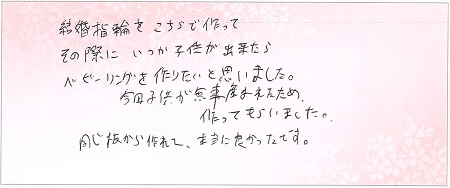 結婚指輪をこちらで作って
その際にいつか子供が出来たら
ベビーリングを作りたいと思いました。
今回子供が無事産まれたため、
作ってもらいました。
同じ板から作れて、本当に良かったです。